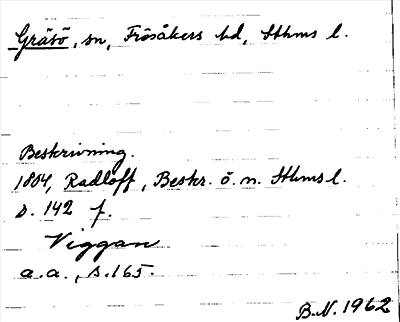 Gräsö, sn, Frösåkers hd, Sthms l.
Beskrivning.
1804, Radloff, Beskr. ö. n. Sthms l.
s. 142 f.
Viggan
a.a., s. 165.
B.N. 1962